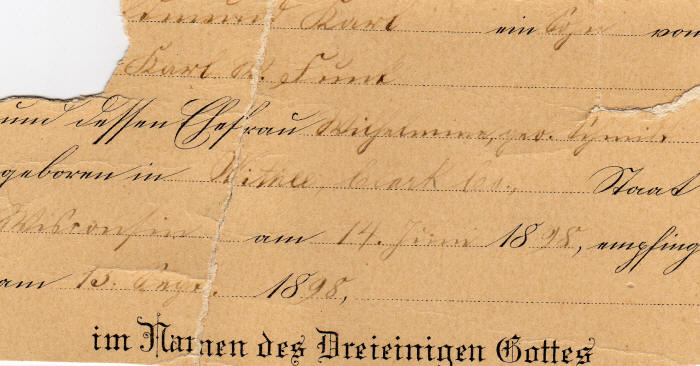 Karl ein Sohn von
Karl W. Funk
und dessen Ehefrau Wilhelmine, geb. Schmidt
geboren in Withee, Clark Co., Staat
Wisconsin am 14. Juni 1898, empfing
am 13. 1898,
im Namen des Dreieinigen Gottes